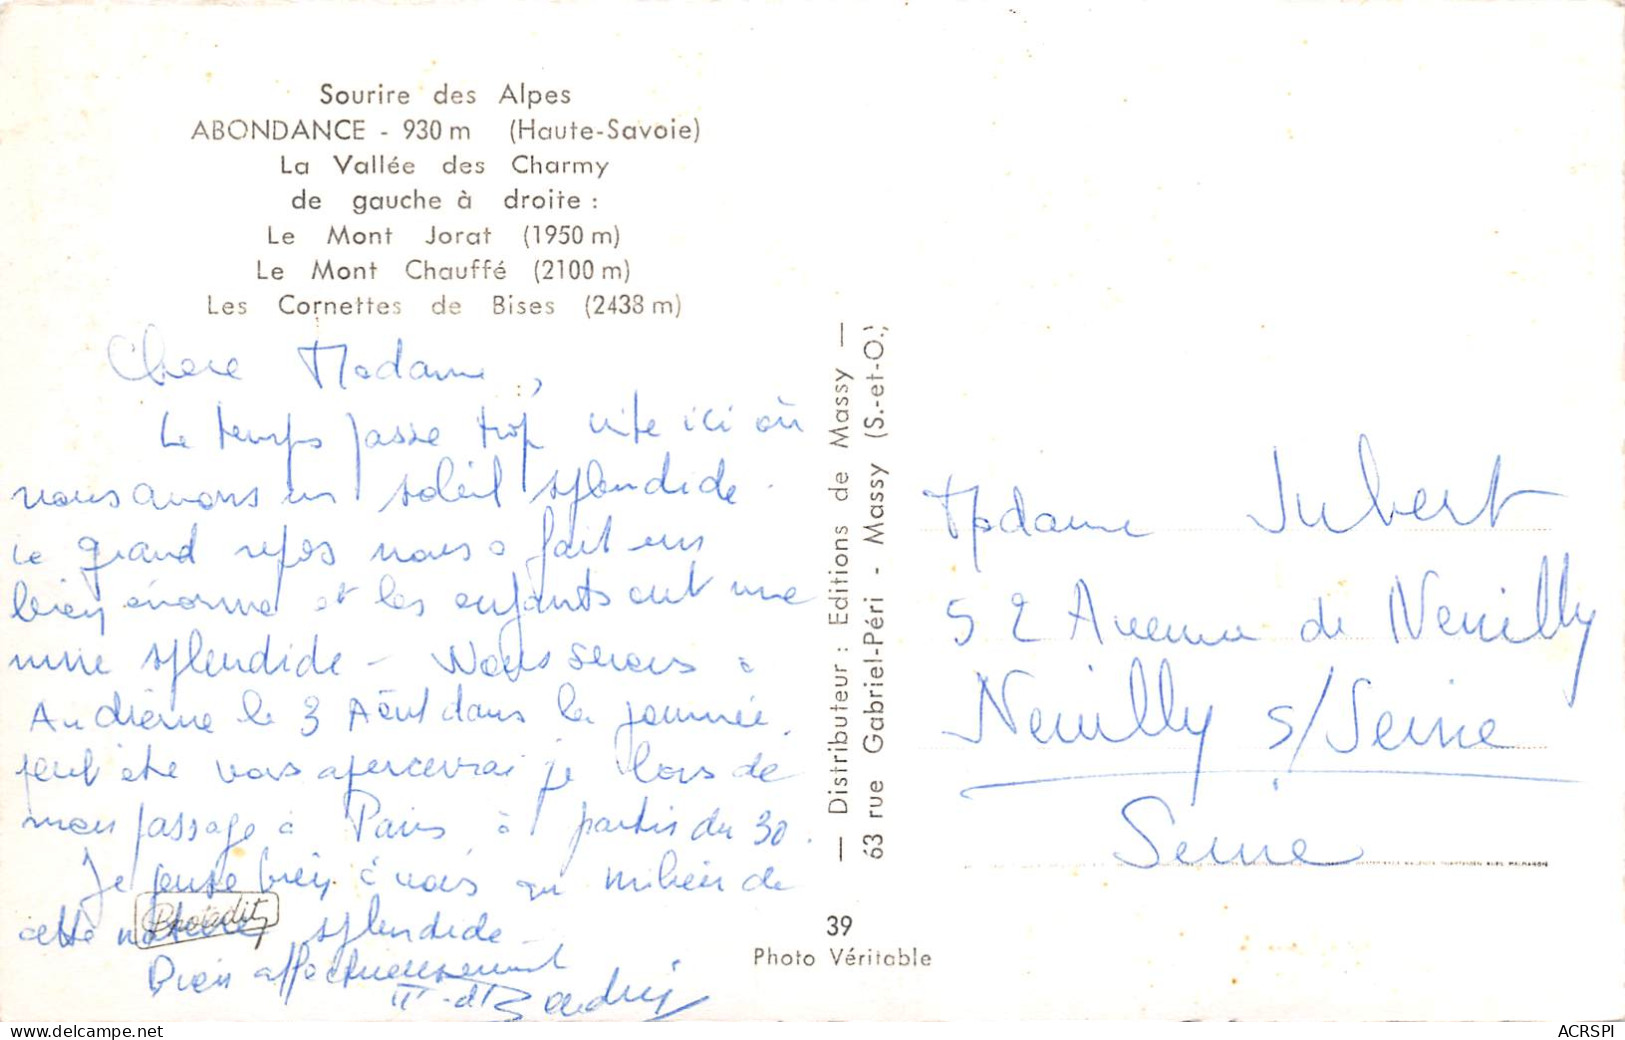 Sourire des Alpes
ABONDANCE - 930 m (Haute-Savoie)
La Vallée des Charmy
de gauche à droite :
Le Mont Jorat (1950 m)
Le Mont Chauffé (2100 m)
Les Cornettes de Bises (2438 m)
Chere Madame,
Le temps passe trop vite ici où
nous avons un soleil splendide.
ce grand repos nous a fait un
bien énorme et les enfants ont une
mine splendide - Nous serons à
Audierne le 3 Août dans la journée.
peut être vous apercevrai je lors de
mon passage à Paris à partir du 30.
Je pense bien à vous au milieu de
cette nature splendide -
Bien affectueusement
Photo Véritable
39
— Distributeur : Editions de Massy —
63 rue Gabriel-Péri - Massy (S.-et-O.)
Madame Jubert
52 Avenue de Neuilly
Neuilly s/Seine
Seine
ACRSPI